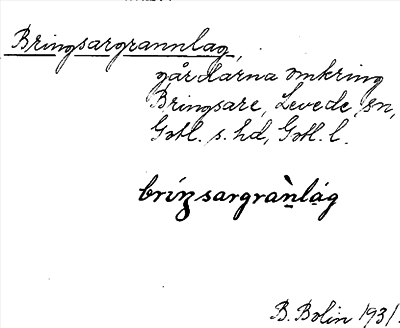 Bringsargrannlag,
gårdarna omkring
Bringsare, Levede sn,
Gotl. s. hd, Gotl. l.
bríŋsargraǹ̲lág
B. Bolin 1931.